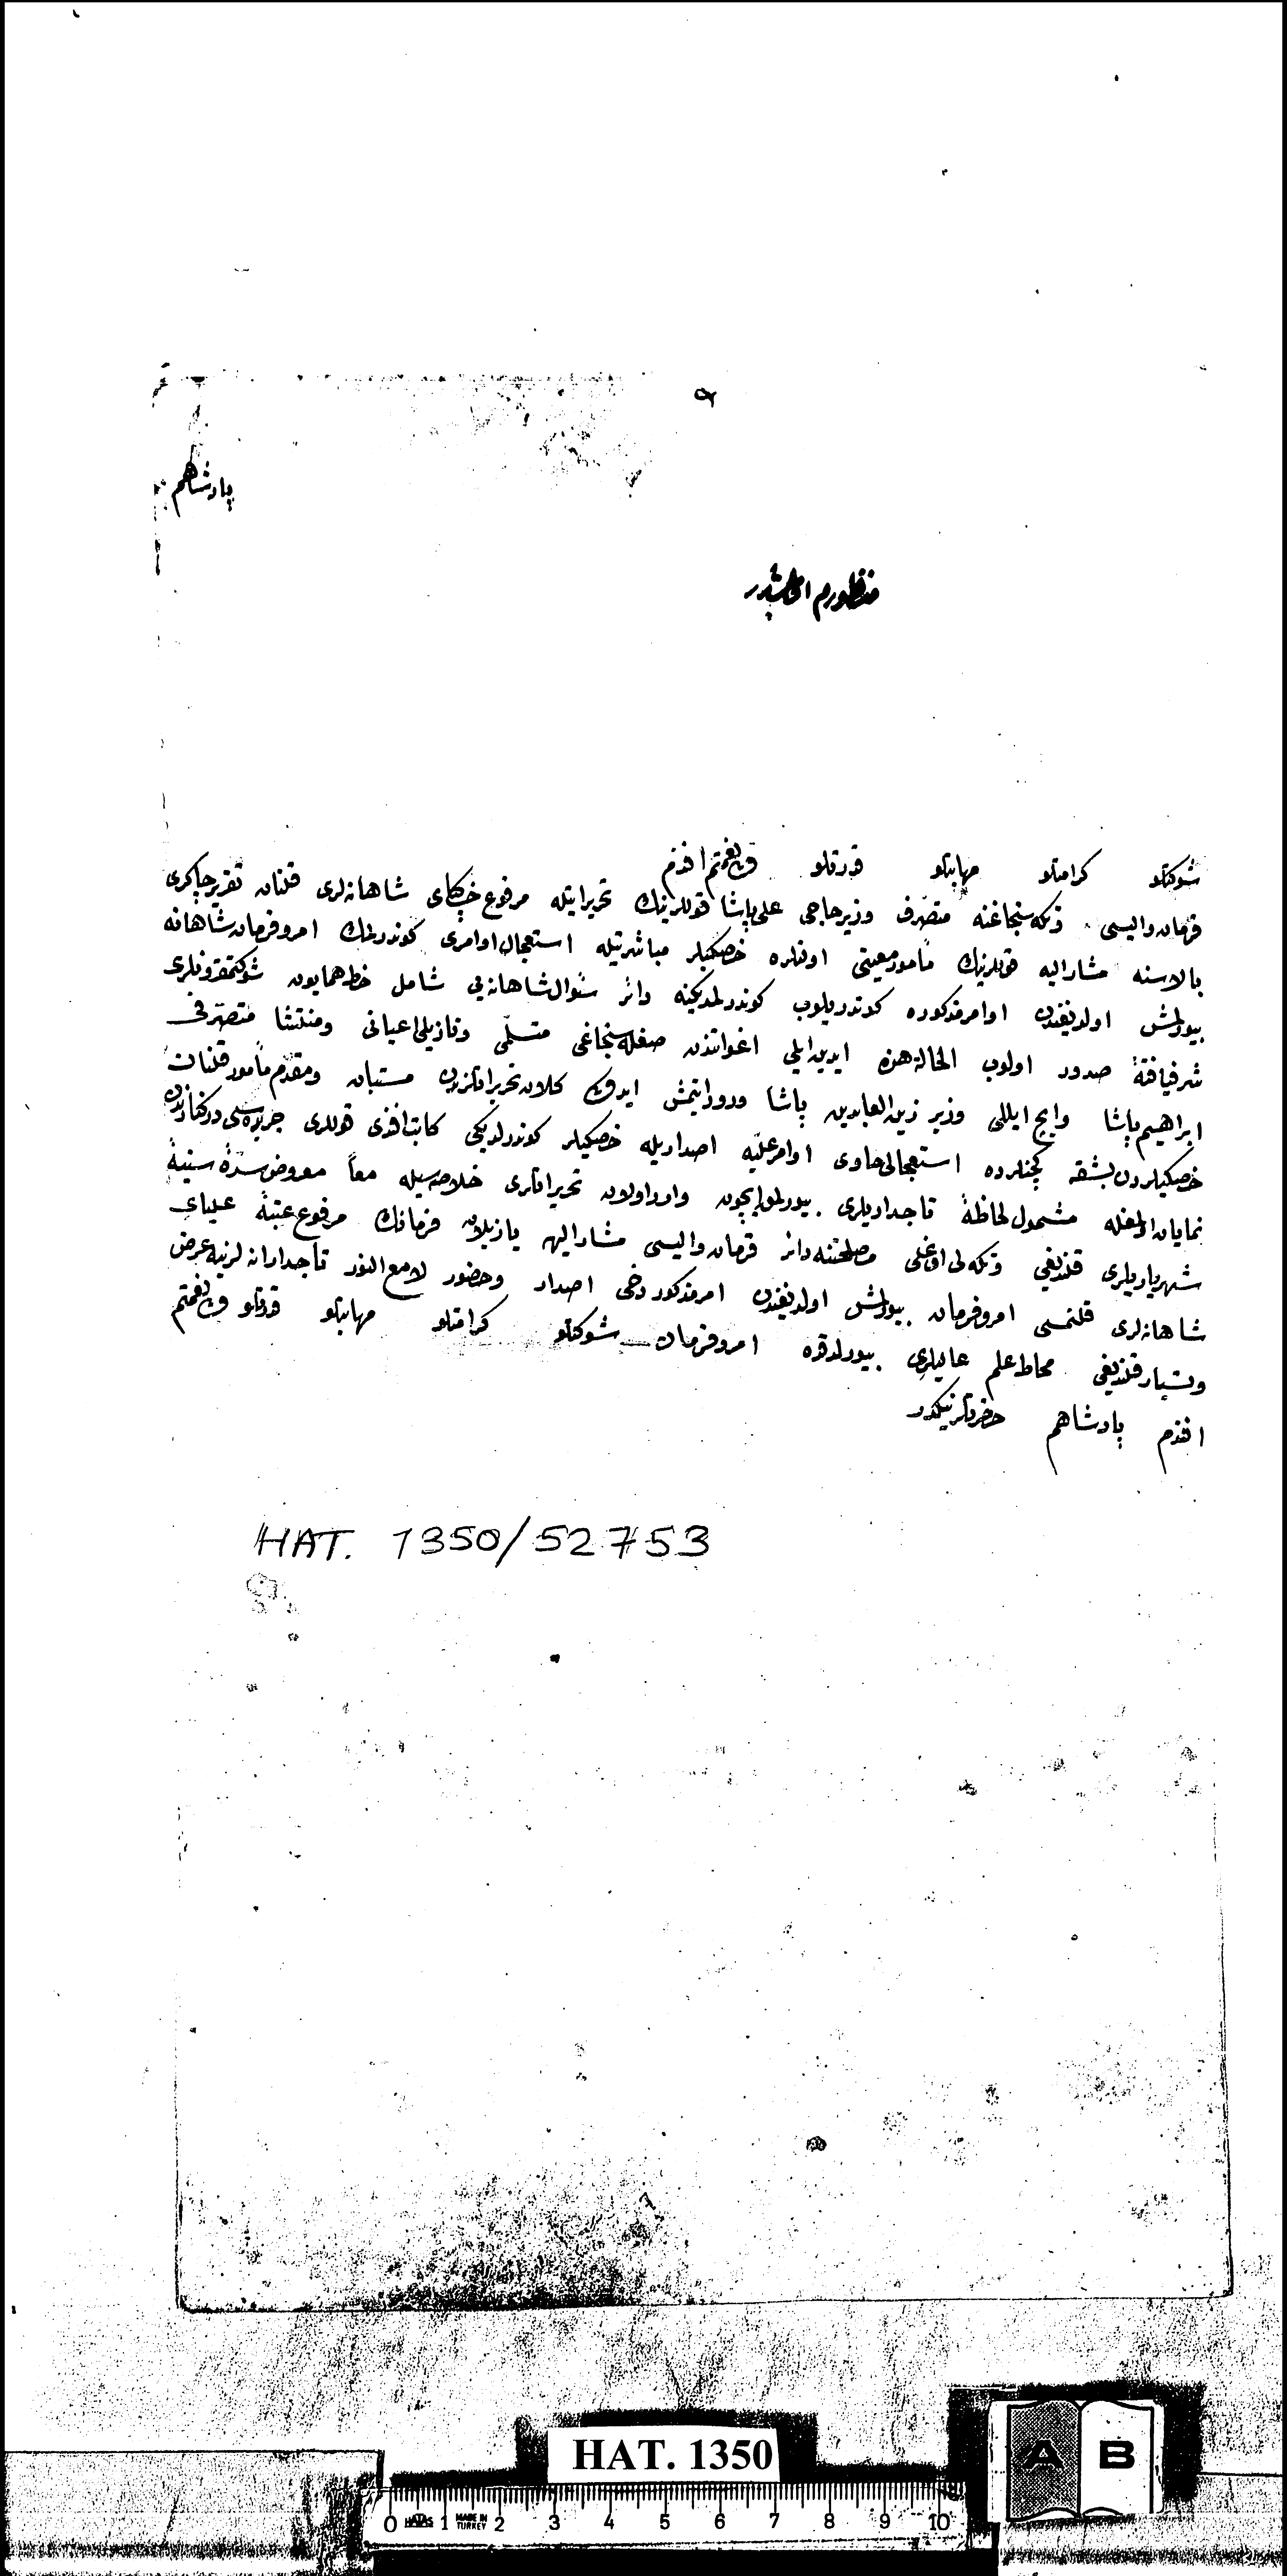 پادشاهم
منظورم اولمشدر
شوكتلو كرامتلو مهابتلو قدرتلو ولی نعمتم افندم
قرمان والیسی و تكه سنجاغنه متصرف وزیر حاجی علی پاشا قوللرینك تحریراتیله مرفوع خاكپای شاهانه لری قلنان تقریر چاكری
بالاسنه مشار الیه قوللرینك مأمور معیتی اولنلره خصكیلر مباشرتیله استعجال اوامری كوندرلمك امر و فرمان شاهانه
بیورلمش اولدیغندن اوامر مذكوره كوندریلوب كوندرلمدیكنه دائر سؤال شاهانه یی شامل خط همایون شوكتمقرونلری
شرفیافتهٔ صدور اولوب الحالة هذه ایدین ایلی اغواتندن صغله سنجاغی متسلمی و نازیللی اعیانی و منتشا متصرفی
ابراهیم پاشا وایچ ایللی وزیر زین العابدین پاشا ورود ایتمش ایدوكی كلان تحریراتلرندن مستبان و مقدم مأمور قلنان
خصكیلردن بشقه كچنلرده استعجالی حاوی اوامر علیه اصداریله خصكیلر كوندرلدیكی كاتب افندی قوللری جریده سی دركنارندن
نمایان اولمغله مشمول لحاظهٔ تاجداریلری بیورلمق ایچون وارد اولان تحریراتلری خلاصه سیله معاً معروض سدهٔ سنیهٔ
شهریاریلری قلندیغی و تكه لی اوغلی مصلحتنه دائر قرمان والیسی مشار الیه یازیلان فرمانك مرفوع عتبهٔ علیای
شاهانه لری قلنمسی امر و فرمان بیورلمش اولدیغندن امر مذكور دخی اصدار و حضور لامع النور تاجدارانه لرینه عرض
و تسیار قلندیغی محاط علم عالیلری بیورلدقده امر و فرمان شوكتلو كرامتلو مهابتلو قدرتلو ولی نعمتم
افندم پادشاهم حضرتلرینكدر
HAT. 1350/52753
HAT. 1350
A B
0 HATAS 1 MADE IN TURKEY 2 3 4 5 6 7 8 9 10